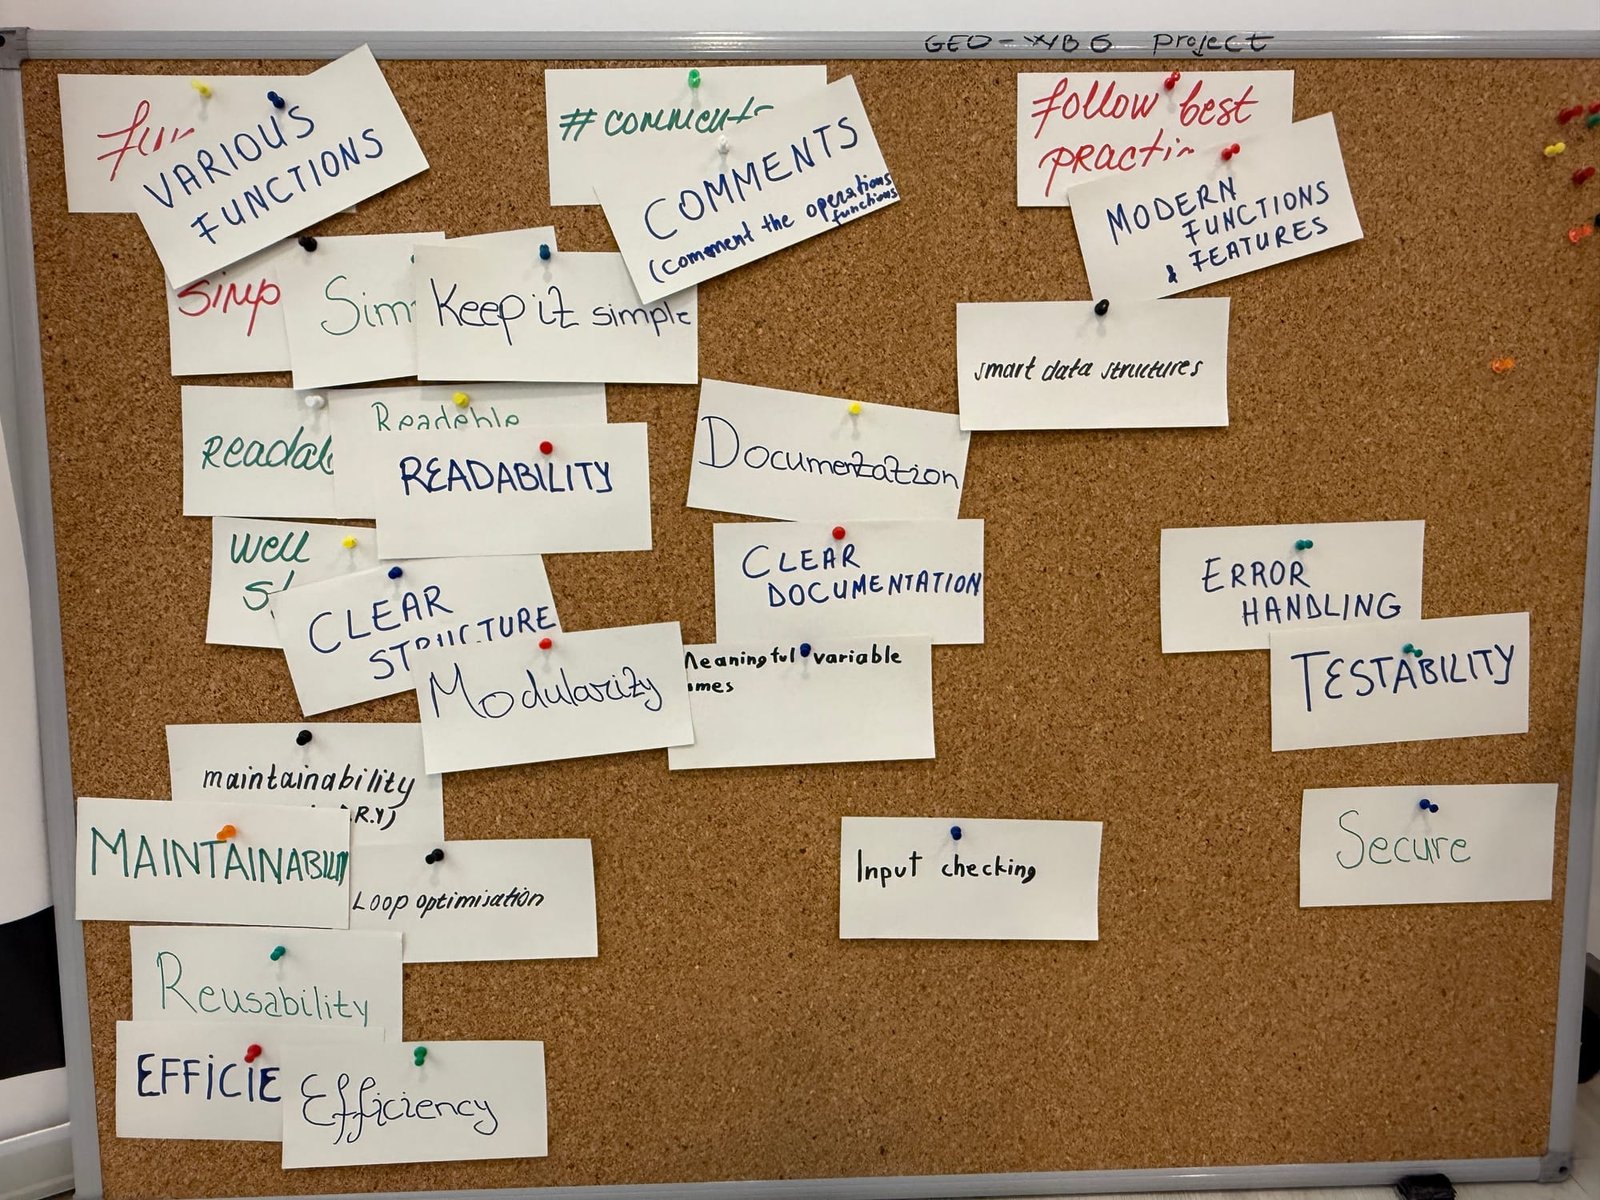 GEO-WB6 project
VARIOUS
FUNCTIONS
# comments
COMMENTS
(comment the operations
functions
Follow best
MODERN
FUNCTIONS
& FEATURES
Simp
Sim
Keep it simple
smart data structures
Readab
Readable
READABILITY
Documentation
Well
CLEAR
STRUCTURE
CLEAR
DOCUMENTATION
Modularity
Meaningful variable
ames
ERROR
HANDLING
TESTABILITY
maintainability
R.Y)
MAINTAINABILIT
Loop optimisation
Input checking
Secure
Reusability
EFFICIE
Efficiency